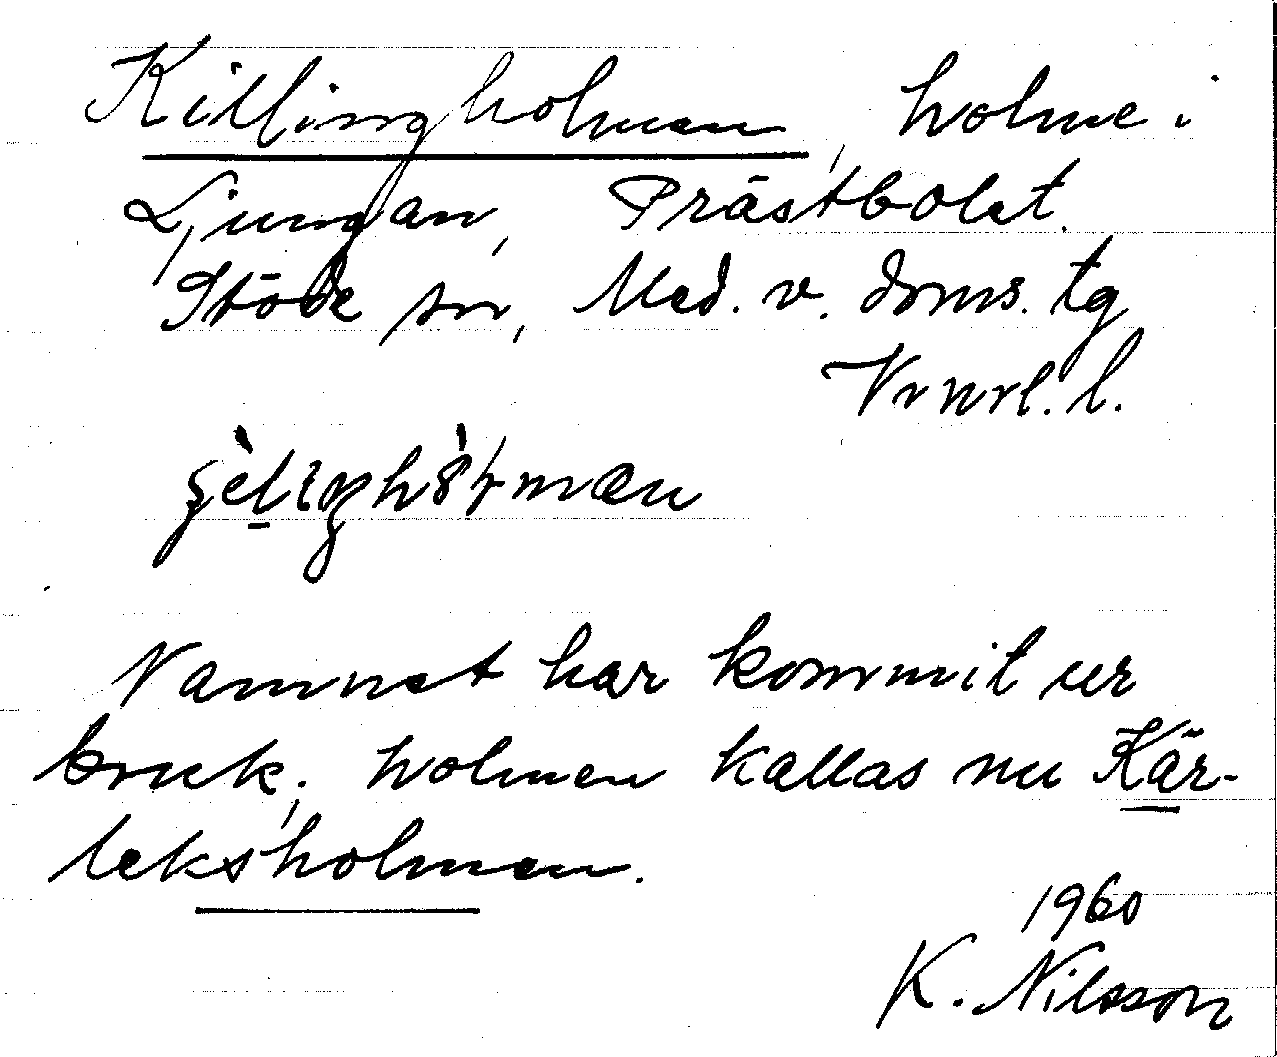 Killingholmen, holme i
Ljungan, Prästbolet.
Stöde sn, Med. v. doms. tg
Vnrl. l.
Namnet har kommit ur
bruk; holmen kallas nu Kär-
leksholmen.
1960
K. Nilsson